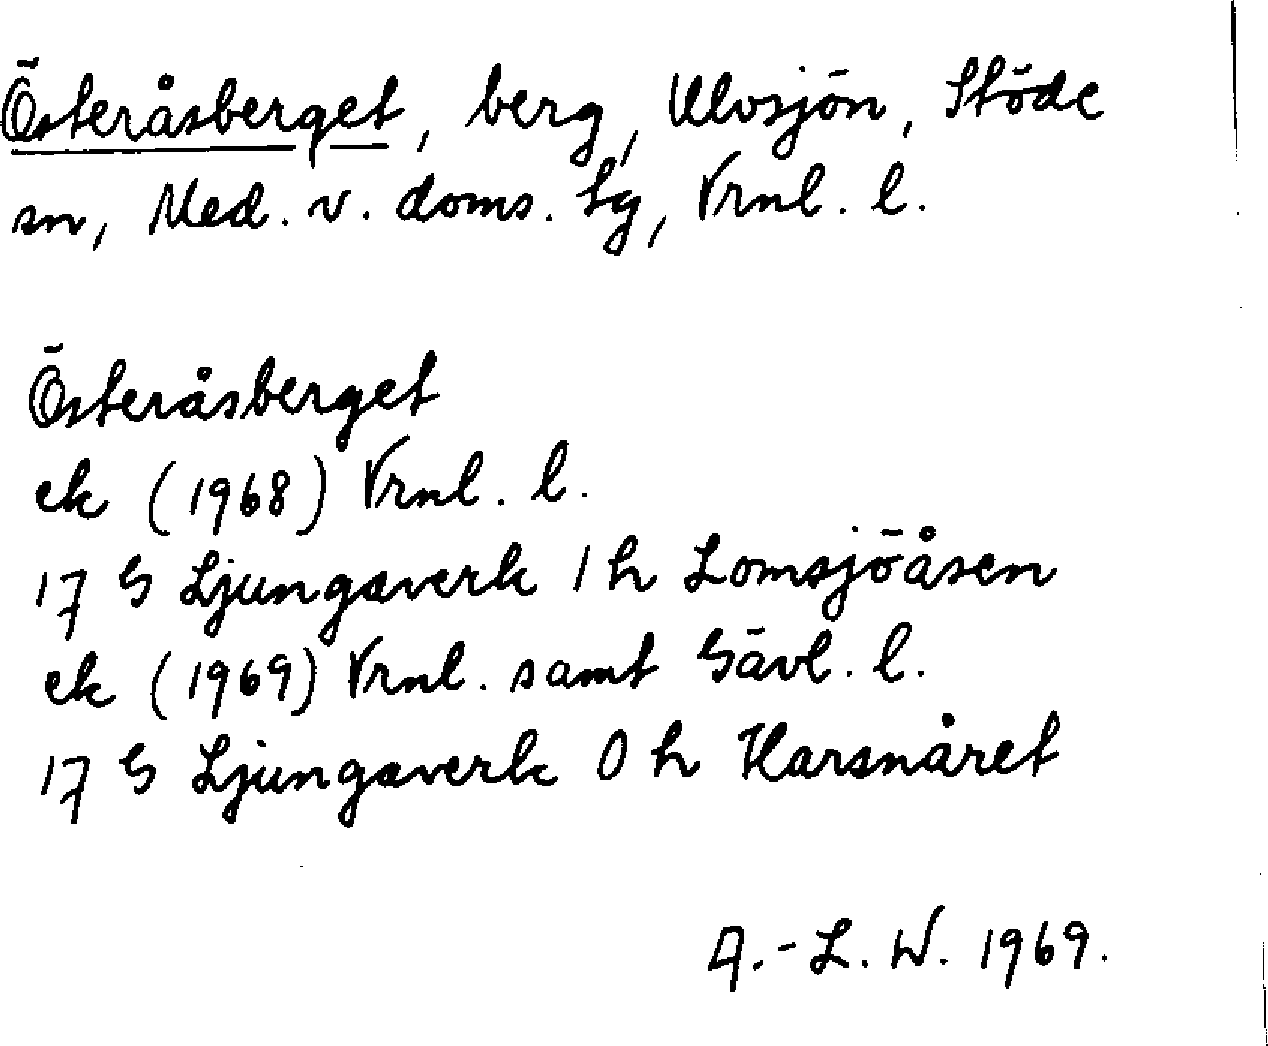 Österåsberget, berg, Ulvsjön, Stöde
sn, Med. v. doms. tg, Vrnl. l.
Österåsberget
ek (1968) Vrnl. l.
17 G Ljungaverk 1 h Lomsjöåsen
ek (1969) Vrnl. samt Gävl. l.
17 G Ljungaverk 0 h Harsnåret
A.-L. W. 1969.